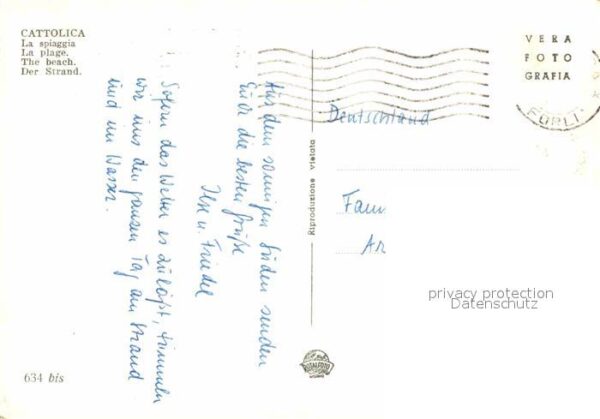 CATTOLICA
La spiaggia
La plage.
The beach.
Der Strand.
VERA
FOTO
GRAFIA
FORLI
Deutschland
Fam
An
Riproduzione vietata
Aus dem sonnigen Süden senden
Euch die besten Grüße
Ilse u. Friedel
Sofern das Wetter es zuläßt, tummeln
wir uns den ganzen Tag am Strand
und im Wasser.
privacy protection
Datenschutz
634 bis